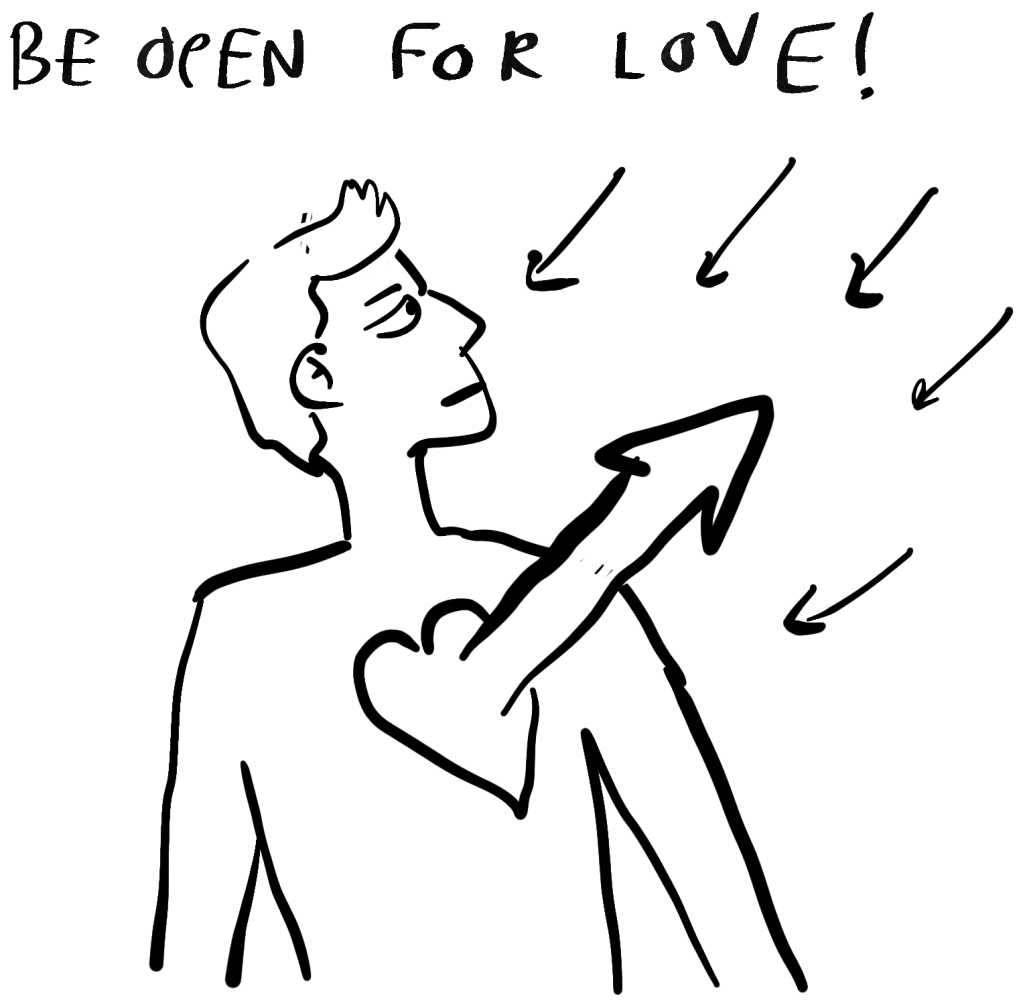 BE OPEN FOR LOVE!